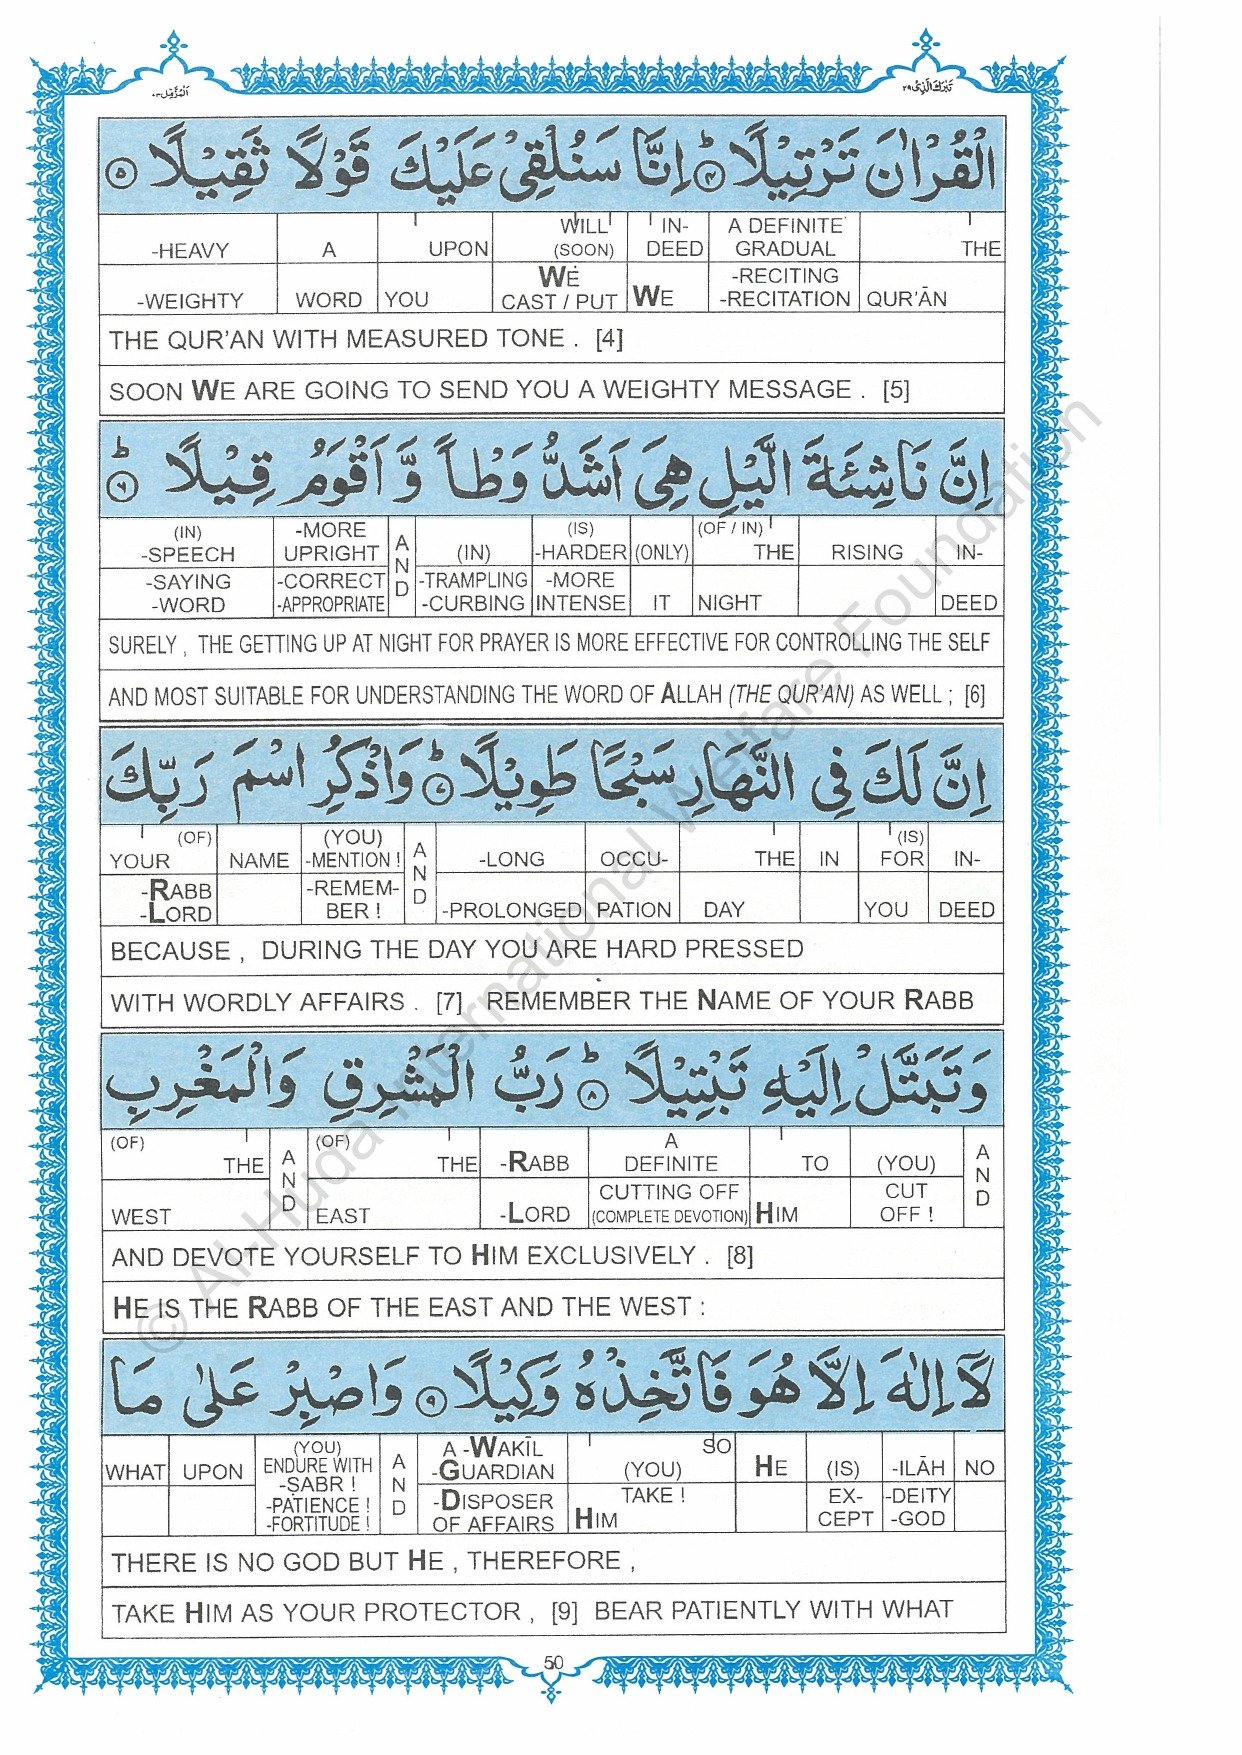 المزمل ٧٣
تبرك الذی ٢٩
الْقُرْاٰنَ تَرْتِيْلًا ؕ ﴿٤﴾ اِنَّا سَنُلْقِیْ عَلَيْكَ قَوْلًا ثَقِيْلًا ﴿٥﴾
-HEAVY A UPON WILL (SOON) IN- DEED A DEFINITE GRADUAL THE
-WEIGHTY WORD YOU WE CAST / PUT WE -RECITING -RECITATION QUR'ĀN
THE QUR'AN WITH MEASURED TONE . [4]
SOON WE ARE GOING TO SEND YOU A WEIGHTY MESSAGE . [5]
اِنَّ نَاشِئَةَ الَّيْلِ هِیَ اَشَدُّ وَطْاً وَّ اَقْوَمُ قِيْلًا ؕ ﴿٦﴾
(IN) -SPEECH -MORE UPRIGHT AND (IN) (IS) -HARDER (ONLY) (OF / IN) THE RISING IN-
-SAYING -WORD -CORRECT -APPROPRIATE -TRAMPLING -CURBING -MORE INTENSE IT NIGHT DEED
SURELY , THE GETTING UP AT NIGHT FOR PRAYER IS MORE EFFECTIVE FOR CONTROLLING THE SELF
AND MOST SUITABLE FOR UNDERSTANDING THE WORD OF ALLAH (THE QUR'AN) AS WELL ; [6]
اِنَّ لَكَ فِی النَّهَارِ سَبْحًا طَوِيْلًا ؕ ﴿٧﴾ وَاذْكُرِ اسْمَ رَبِّكَ
YOUR (OF) NAME (YOU) -MENTION ! AND -LONG OCCU- THE IN (IS) FOR IN-
-RABB -LORD -REMEM- BER ! -PROLONGED PATION DAY YOU DEED
BECAUSE , DURING THE DAY YOU ARE HARD PRESSED
WITH WORDLY AFFAIRS . [7] REMEMBER THE NAME OF YOUR RABB
وَتَبَتَّلْ اِلَيْهِ تَبْتِيْلًا ؕ ﴿٨﴾ رَبُّ الْمَشْرِقِ وَالْمَغْرِبِ
(OF) THE AND (OF) THE -RABB A DEFINITE TO (YOU) AND
WEST EAST -LORD CUTTING OFF (COMPLETE DEVOTION) HIM CUT OFF !
AND DEVOTE YOURSELF TO HIM EXCLUSIVELY . [8]
HE IS THE RABB OF THE EAST AND THE WEST :
لَآ اِلٰهَ اِلَّا هُوَ فَاتَّخِذْهُ وَكِيْلًا ﴿٩﴾ وَاصْبِرْ عَلٰی مَا
WHAT UPON (YOU) ENDURE WITH -SABR ! -PATIENCE ! -FORTITUDE ! AND A -WAKĪL -GUARDIAN SO (YOU) HE (IS) -ILĀH NO
-DISPOSER OF AFFAIRS TAKE ! HIM EX- CEPT -DEITY -GOD
THERE IS NO GOD BUT HE , THEREFORE ,
TAKE HIM AS YOUR PROTECTOR , [9] BEAR PATIENTLY WITH WHAT
50
© Al-Huda International Welfare Foundation